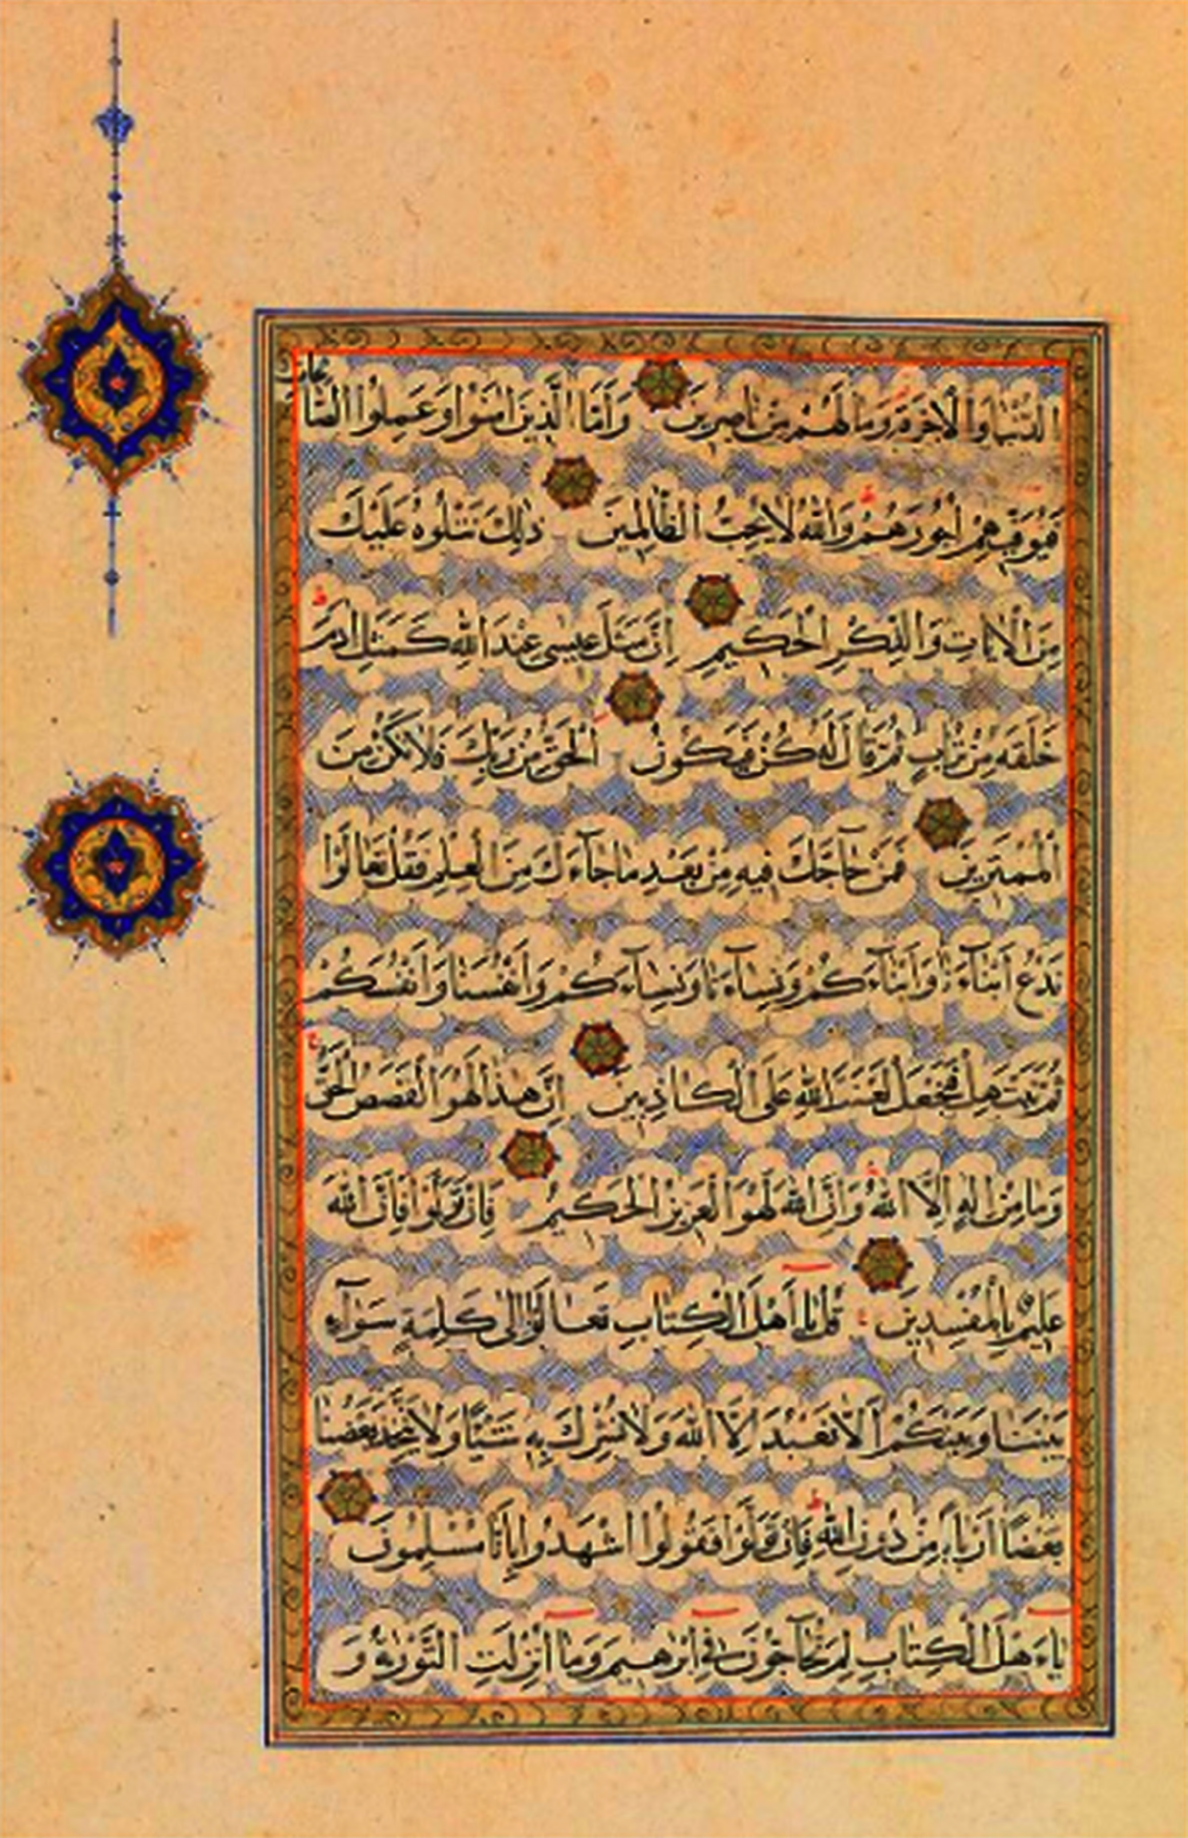 الدُّنْيَا وَالْاٰخِرَةِ وَمَا لَهُمْ مِنْ نَاصِرِينَ وَاَمَّا الَّذِينَ اٰمَنُوا وَعَمِلُوا الصَّالِحَاتِ
فَيُوَفِّيهِمْ اُجُورَهُمْ وَاللّٰهُ لَا يُحِبُّ الظَّالِمِينَ ذٰلِكَ نَتْلُوهُ عَلَيْكَ
مِنَ الْاٰيَاتِ وَالذِّكْرِ الْحَكِيمِ اِنَّ مَثَلَ عِيسٰى عِنْدَ اللّٰهِ كَمَثَلِ اٰدَمَ
خَلَقَهُ مِنْ تُرَابٍ ثُمَّ قَالَ لَهُ كُنْ فَيَكُونُ الْحَقُّ مِنْ رَبِّكَ فَلَا تَكُنْ مِنَ
الْمُمْتَرِينَ فَمَنْ حَاجَّكَ فِيهِ مِنْ بَعْدِ مَا جَآءَكَ مِنَ الْعِلْمِ فَقُلْ تَعَالَوْا
نَدْعُ اَبْنَآءَنَا وَاَبْنَآءَكُمْ وَنِسَآءَنَا وَنِسَآءَكُمْ وَاَنْفُسَنَا وَاَنْفُسَكُمْ
ثُمَّ نَبْتَهِلْ فَنَجْعَلْ لَعْنَتَ اللّٰهِ عَلَى الْكَاذِبِينَ اِنَّ هٰذَا لَهُوَ الْقَصَصُ الْحَقُّ
وَمَا مِنْ اِلٰهٍ اِلَّا اللّٰهُ وَاِنَّ اللّٰهَ لَهُوَ الْعَزِيزُ الْحَكِيمُ فَاِنْ تَوَلَّوْا فَاِنَّ اللّٰهَ
عَلِيمٌ بِالْمُفْسِدِينَ قُلْ يَا اَهْلَ الْكِتَابِ تَعَالَوْا اِلٰى كَلِمَةٍ سَوَآءٍ
بَيْنَنَا وَبَيْنَكُمْ اَلَّا نَعْبُدَ اِلَّا اللّٰهَ وَلَا نُشْرِكَ بِهِ شَيْئًا وَلَا يَتَّخِذَ بَعْضُنَا
بَعْضًا اَرْبَابًا مِنْ دُونِ اللّٰهِ فَاِنْ تَوَلَّوْا فَقُولُوا اشْهَدُوا بِاَنَّا مُسْلِمُونَ
يَاءَهْلَ الْكِتَابِ لِمَ تُحَآجُّونَ فِي اِبْرٰهِيمَ وَمَا اُنْزِلَتِ التَّوْرٰيةُ وَ